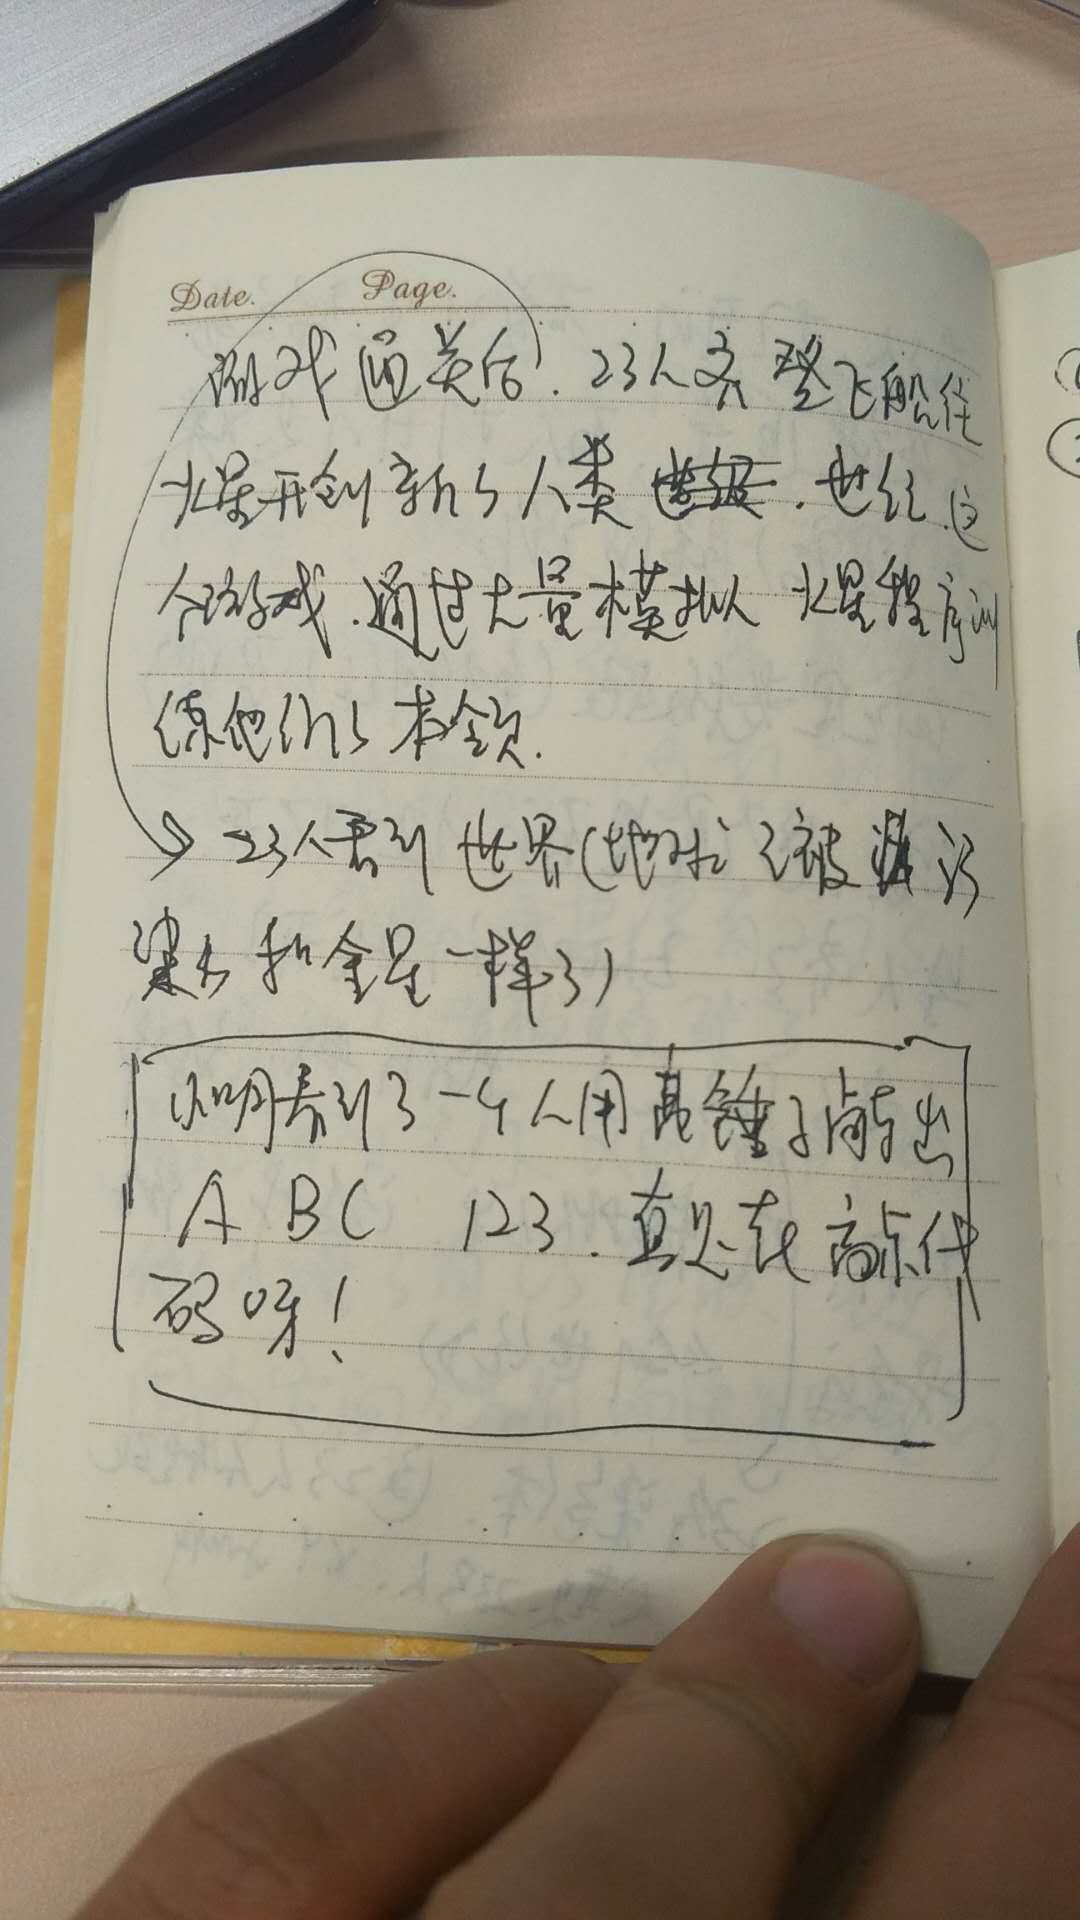 Date. Page.
游戏通关后. 23人齐登飞船往
火星开创新的人类 世纪. 这
个游戏.通过大量模拟 火星程序训
练他们的本领.
→ 23人看到世界(地球已被 污
染的和金星一样了)
看到了一个人用 锤子敲出
A BC 123. 直是在敲代
码呀!